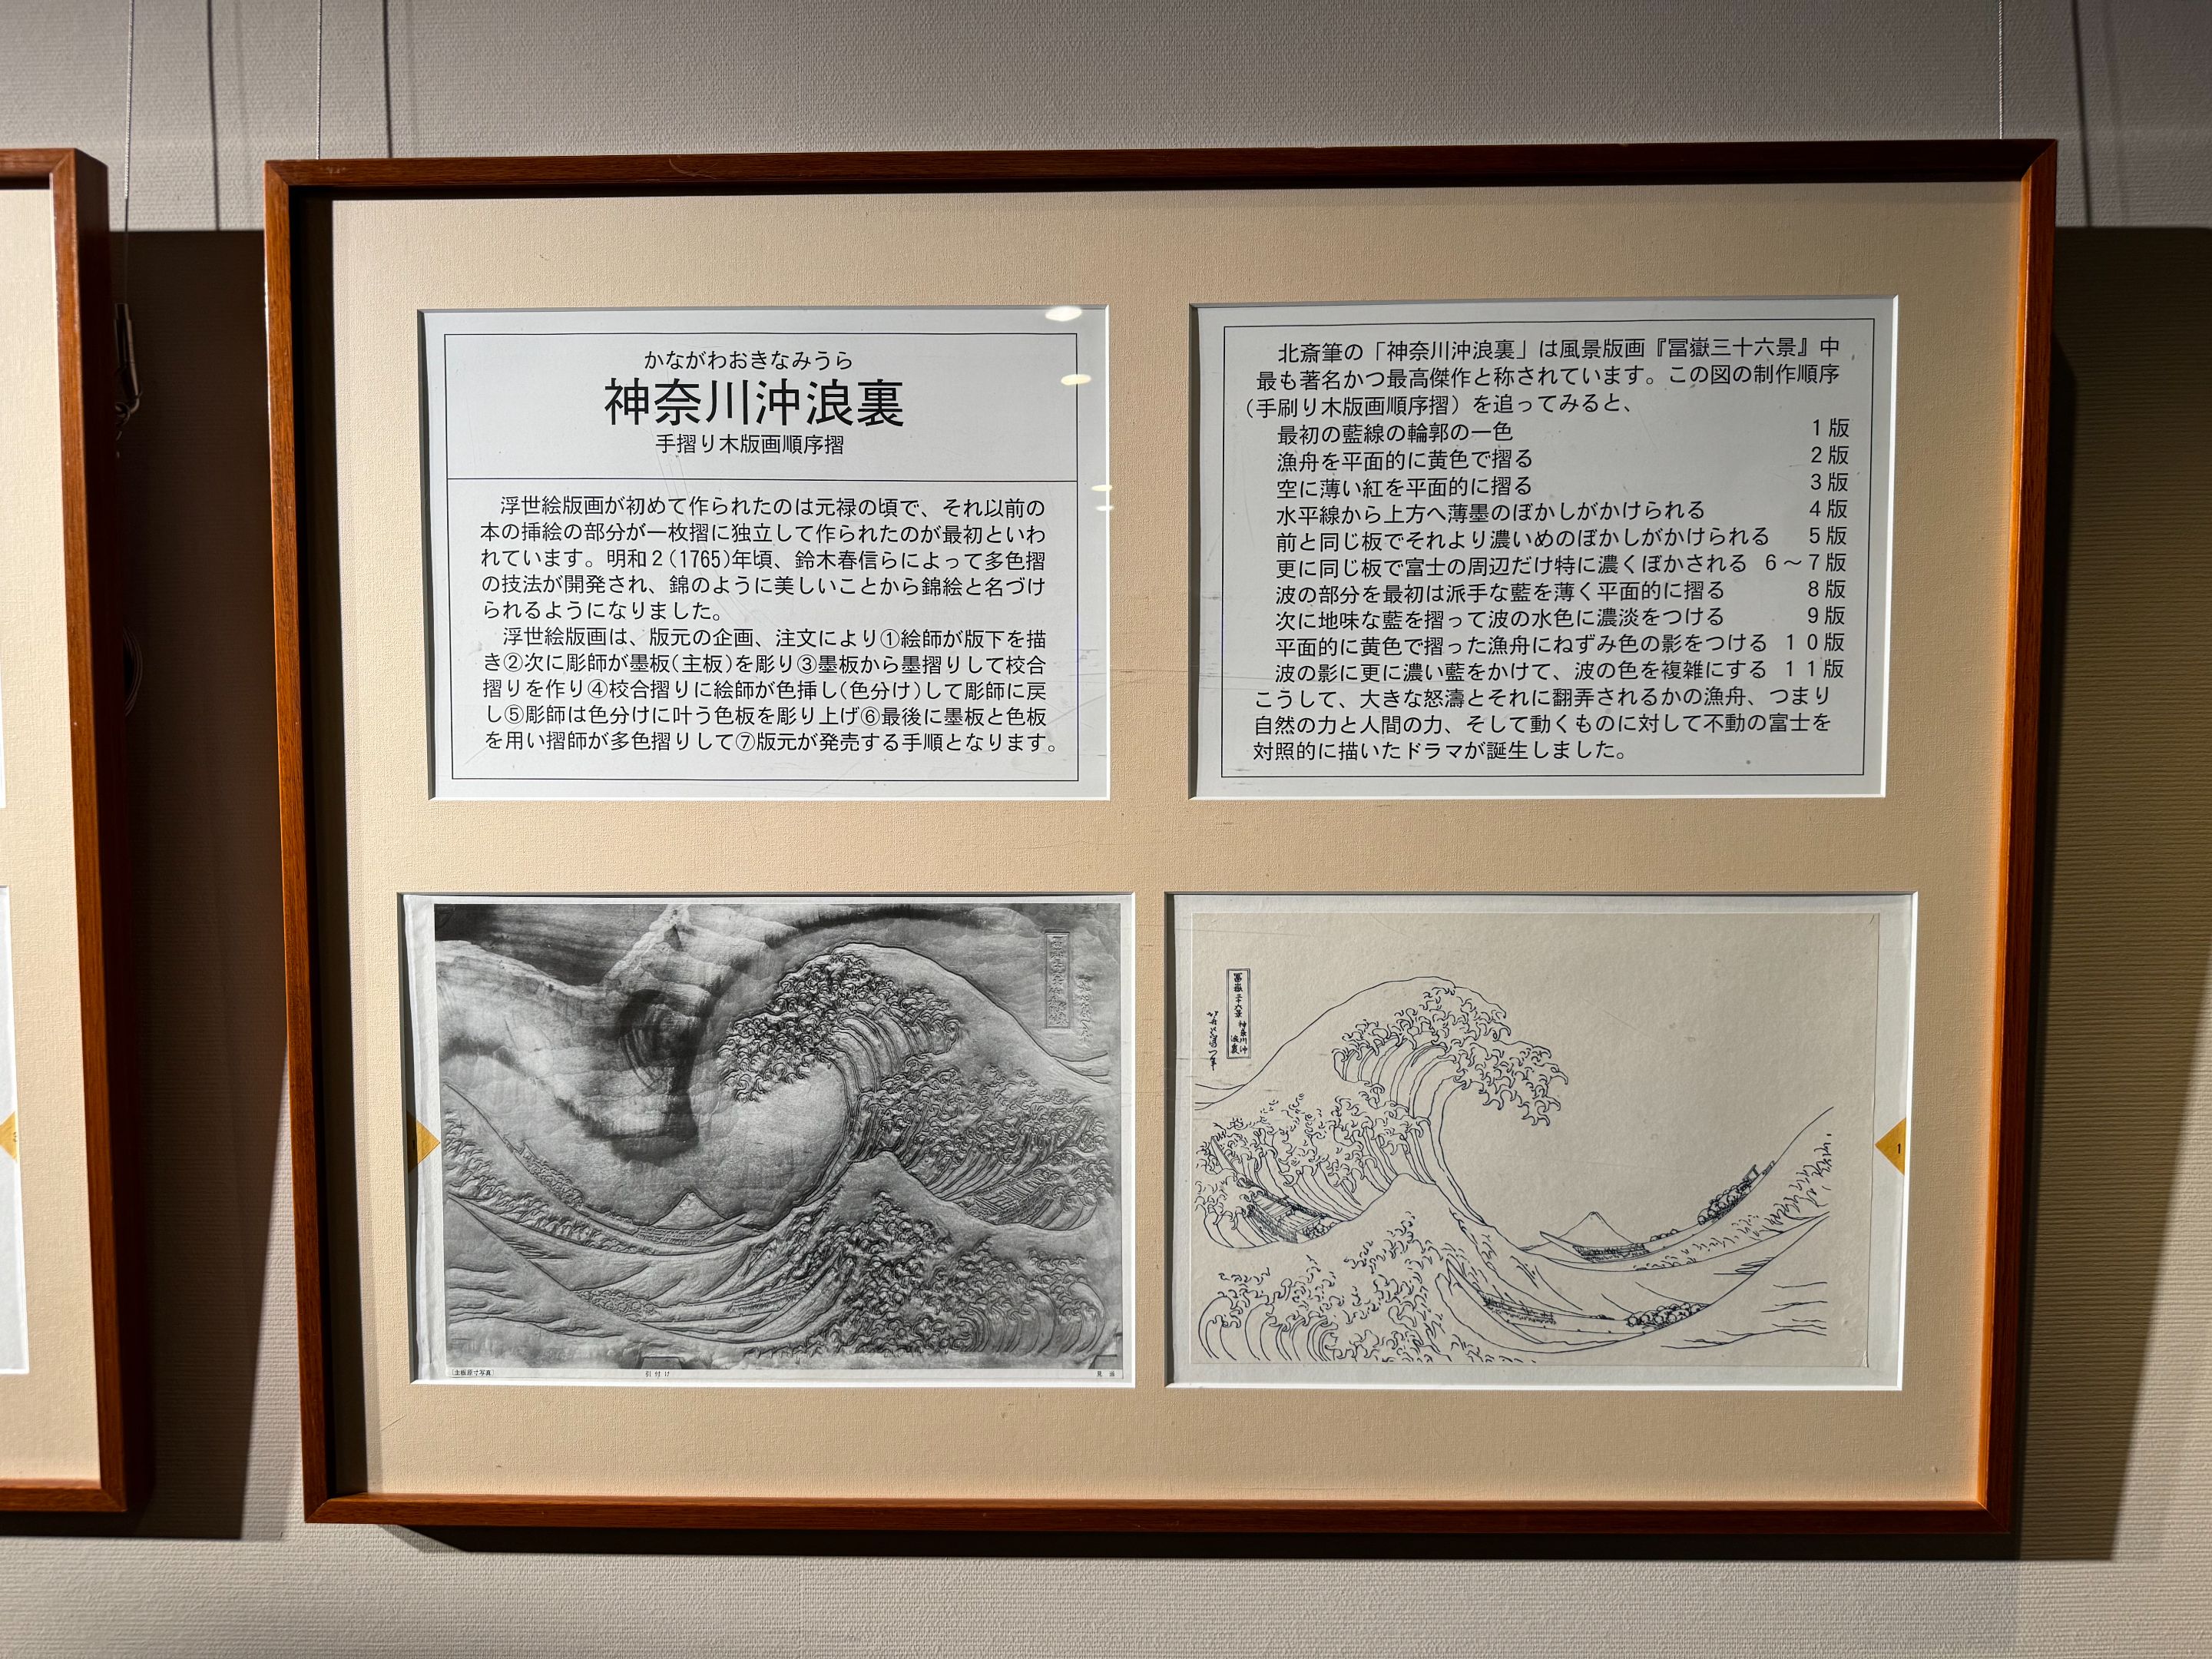 かながわおきなみうら
神奈川沖浪裏
手摺り木版画順序摺
浮世絵版画が初めて作られたのは元禄の頃で、それ以前の
本の挿絵の部分が一枚摺に独立して作られたのが最初といわ
れています。明和2(1765)年頃、鈴木春信らによって多色摺
の技法が開発され、錦のように美しいことから錦絵と名づけ
られるようになりました。
浮世絵版画は、版元の企画、注文により①絵師が版下を描
き②次に彫師が墨板(主板)を彫り③墨板から墨摺りして校合
摺りを作り④校合摺りに絵師が色挿し(色分け)して彫師に戻
し⑤彫師は色分けに叶う色板を彫り上げ⑥最後に墨板と色板
を用い摺師が多色摺りして⑦版元が発売する手順となります。
北斎筆の「神奈川沖浪裏」は風景版画『冨嶽三十六景』中
最も著名かつ最高傑作と称されています。この図の制作順序
(手刷り木版画順序摺)を追ってみると、
最初の藍線の輪郭の一色 1版
漁舟を平面的に黄色で摺る 2版
空に薄い紅を平面的に摺る 3版
水平線から上方へ薄墨のぼかしがかけられる 4版
前と同じ板でそれより濃いめのぼかしがかけられる 5版
更に同じ板で富士の周辺だけ特に濃くぼかされる 6～7版
波の部分を最初は派手な藍を薄く平面的に摺る 8版
次に地味な藍を摺って波の水色に濃淡をつける 9版
平面的に黄色で摺った漁舟にねずみ色の影をつける 10版
波の影に更に濃い藍をかけて、波の色を複雑にする 11版
こうして、大きな怒濤とそれに翻弄されるかの漁舟、つまり
自然の力と人間の力、そして動くものに対して不動の富士を
対照的に描いたドラマが誕生しました。
(主板原寸写真)
引付け
見当
冨嶽三十六景 神奈川沖
浪裏
1